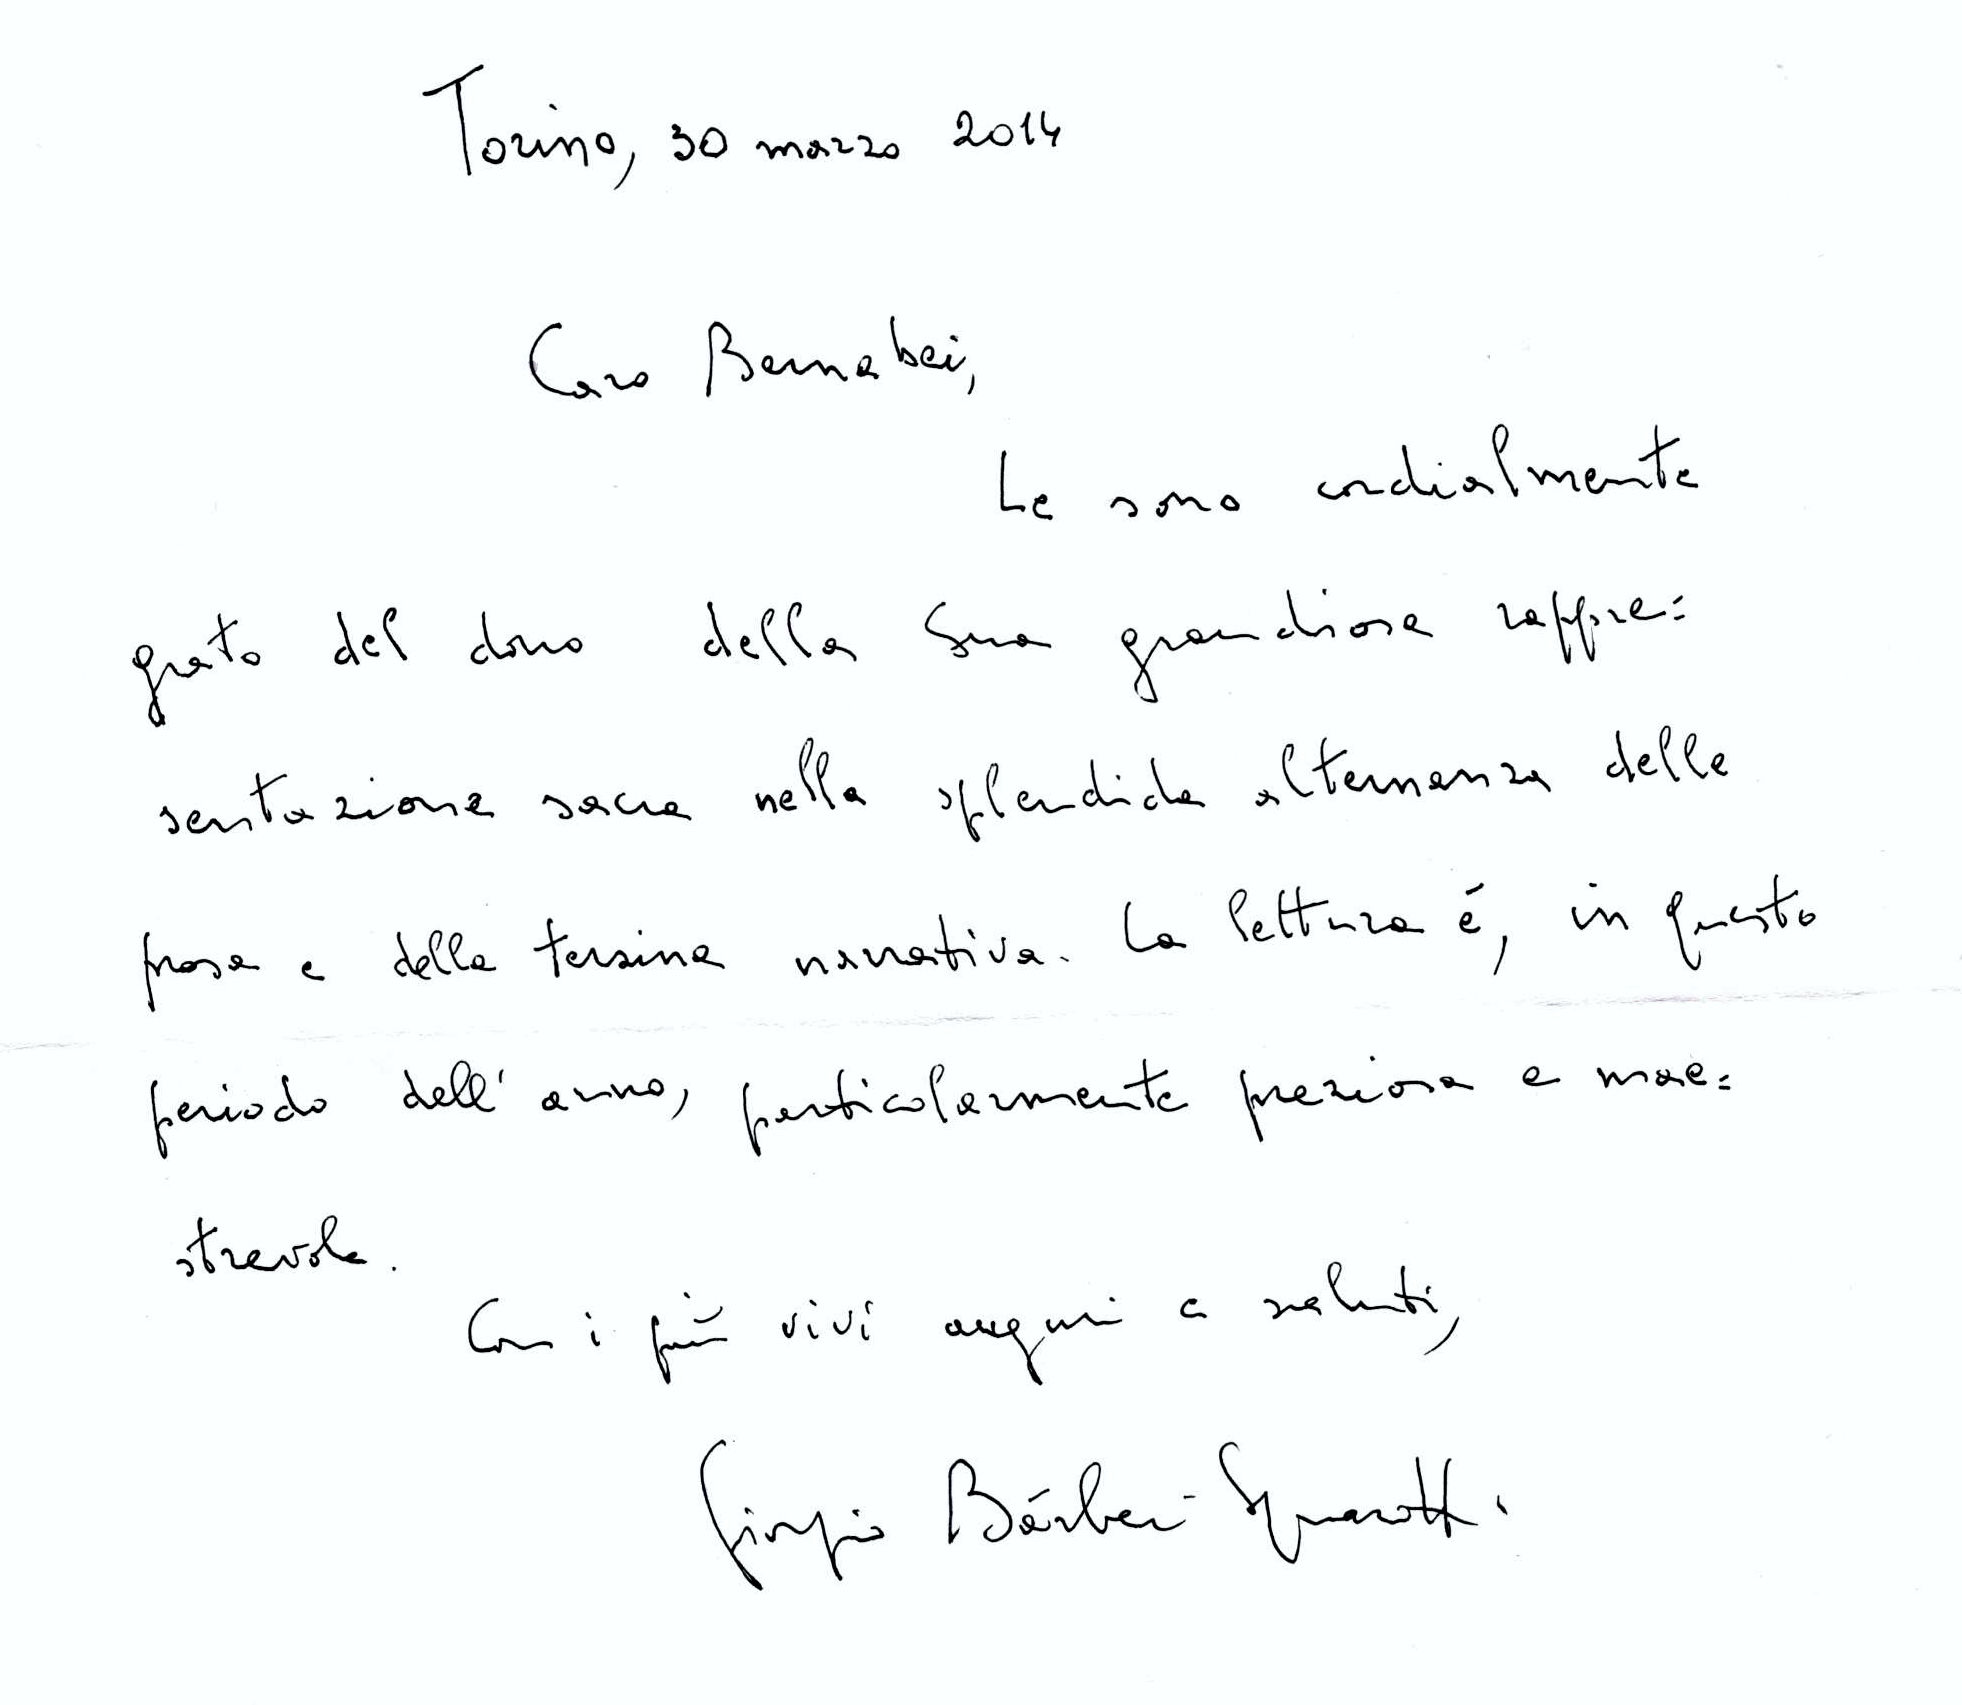 Torino, 30 marzo 2014
Caro Bernabei,
Le sono cordialmente
grato del dono della Sua grandiosa rappre=
sentazione sacra nella splendida alternanza delle
prosa e della terzina narrativa. La lettura é, in questo
periodo dell'anno, particolarmente preziosa e mae=
strevole.
Con i più vivi auguri e saluti,
Giorgio Bárberi Squarotti